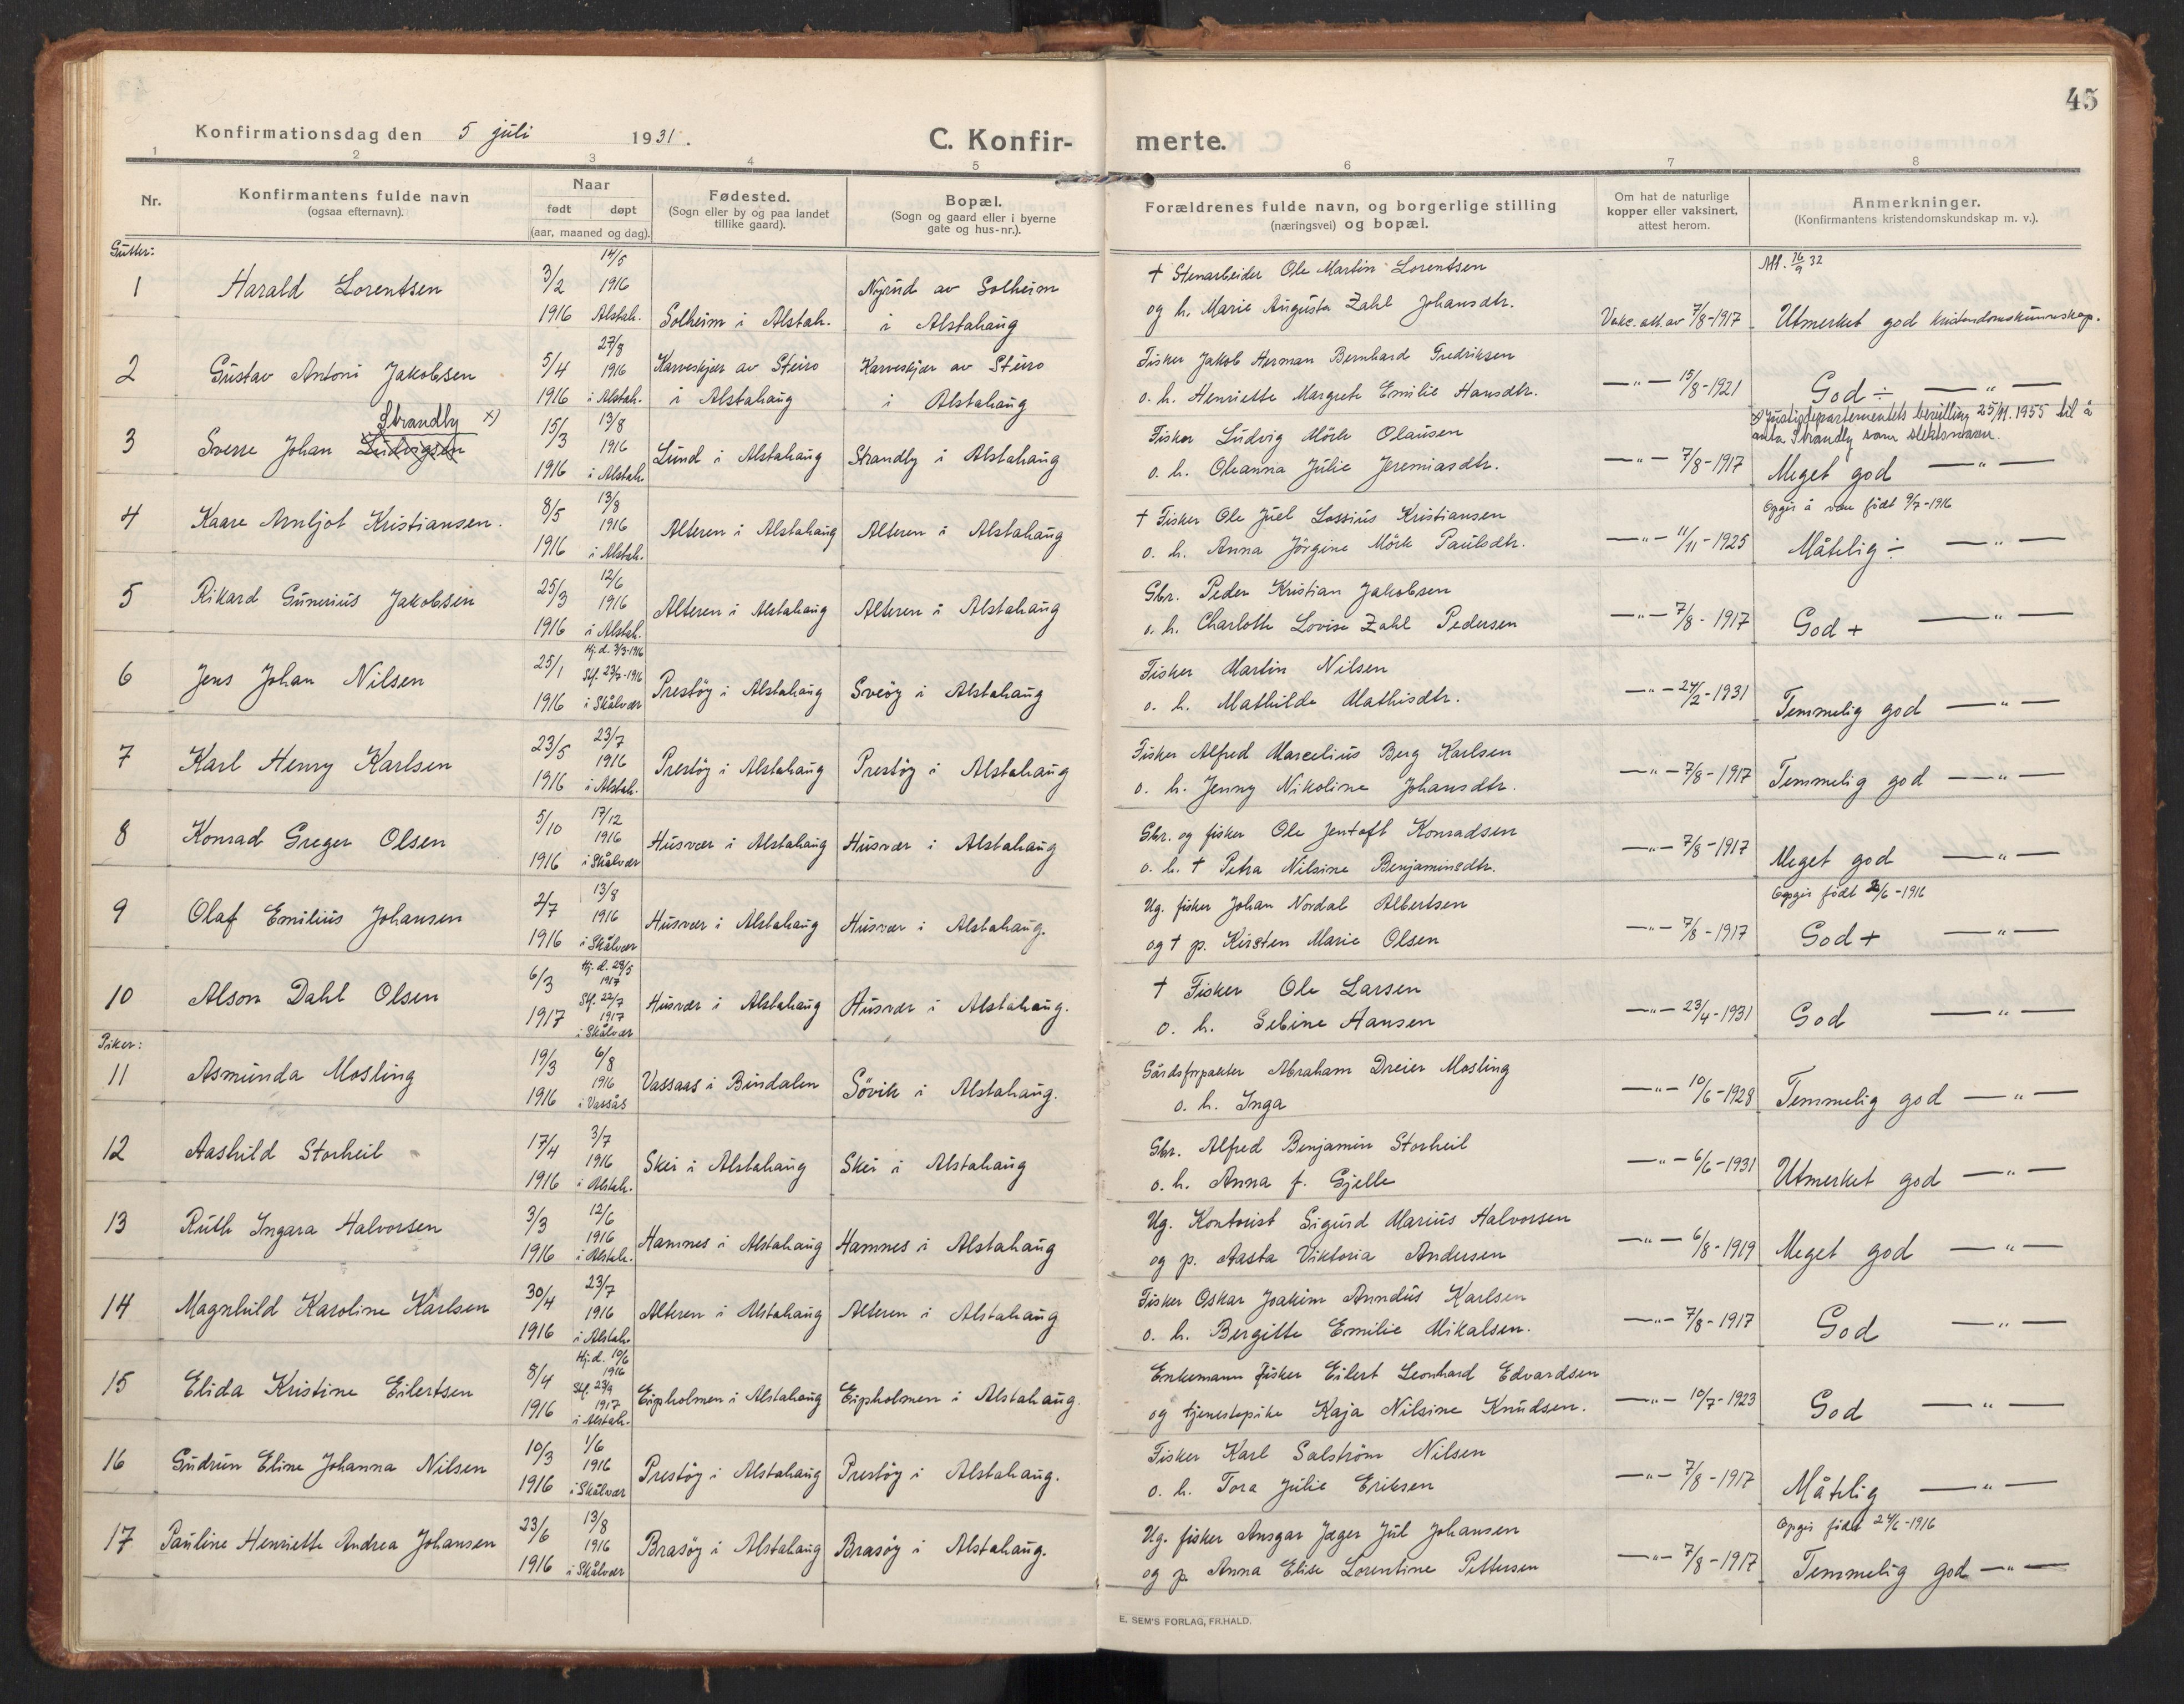 45
Konfirmationsdag den 5 juli 1931.
C. Konfir-
merte.
1 2 3 4 5 6 7 8
Nr.
Konfirmantens fulde navn
(ogsaa efternavn).
Naar
født døpt
(aar, maaned og dag).
Fødested.
(Sogn eller by og paa landet
tillike gaard).
Bopæl.
(Sogn og gaard eller i byerne
gate og hus-nr.).
Forældrenes fulde navn, og borgerlige stilling
(næringsvei) og bopæl.
Om hat de naturlige
kopper eller vaksinert,
attest herom.
Anmerkninger.
(Konfirmantens kristendomskundskap m. v.).
Gutter:
1 Harald Lorentsen
3/2 1916
14/5 1916 Alstah.
Solheim i Alstah.
Nyrud av Solheim
i Alstahaug
† Stenarbeider Ole Martin Lorentsen
og h. Marie Augusta Zahl Johansdtr.
Vakc. att. av 7/8-1917
Att. 16/9 32
Utmerket god kristendomskunnskap.
2 Gustav Antoni Jakobsen
5/4 1916
27/8 1916 i Alstah.
Karveskjær av Steiro
i Alstahaug
Karveskjær av Steiro
i Alstahaug
Fisker Jakob Herman Bernhard Fredriksen
o. h. Henriette Margrete Emilie Hansdtr.
—"— 15/8-1921
God ÷ —"—
3 Sverre Johan Ludvigsen
Strandby x)
15/3 1916
13/8 1916 i Alstah.
Lund i Alstahaug
Strandby i Alstahaug
Fisker Ludvig Mörk Olausen
o. h. Oleanna Julie Jeremiasdtr.
—"— 7/8-1917
x) Justisdepartementets bevilling 25/11.1955 til å
anta Strandby som slektsnavn.
Meget god —"—
4 Kaare Arnljot Kristiansen.
8/5 1916
13/8 1916 i Alstah.
Alteren i Alstahaug
Alteren i Alstahaug
† Fisker Ole Juel Lossius Kristiansen
o. h. Anna Jörgine Mörk Paulsdtr.
—"— 11/11-1925
Opgir å være født 9/7-1916
Måtelig ÷ —"—
5 Rikard Gunerius Jakobsen
25/3 1916
12/6 1916 i Alstah.
Alteren i Alstahaug
Alteren i Alstahaug
Gbr. Peder Kristian Jakobsen
o. h. Charlotte Lovise Zahl Pedersen
—"— 7/8-1917
God + —"—
6 Jens Johan Nilsen
25/1 1916
Hj. d. 3/3-1916
Stf. 23/7-1916
i Skålvær
Prestöy i Alstahaug
Sveöy i Alstahaug
Fisker Martin Nilsen
o. h. Mathilde Mathisdtr.
—"— 24/2-1931
Temmelig god —"—
7 Karl Henry Karlsen
23/5 1916
23/7 1916 i Alstah.
Prestöy i Alstahaug
Prestöy i Alstahaug
Fisker Alfred Marcelius Berg Karlsen
o. h. Jenny Nikoline Johansdtr.
—"— 7/8-1917
Temmelig god —"—
8 Konrad Greger Olsen
5/10 1916
17/12 1916 i Skålvær
Husvær i Alstahaug
Husvær i Alstahaug
Gbr. og fisker Ole Jentoft Konradsen
o. h. † Petra Nilsine Benjaminsdtr.
—"— 7/8-1917
Meget god —"—
9 Olaf Emilius Johansen
2/7 1916
13/8 1916 i Skålvær
Husvær i Alstahaug
Husvær i Alstahaug.
Ug. fisker Johan Nordal Albertsen
og † p. Kirsten Marie Olsen
—"— 7/8-1917
Opgir født /6-1916
God + —"—
10 Alson Dahl Olsen
6/3 1917
Hj. d. 28/5 1917
Stf. 22/7 1917
i Skålvær
Husvær i Alstahaug
Husvær i Alstahaug.
† Fisker Ole Larsen
o. h. Sebine Hansen
—"— 23/4-1931
God —"—
Piker:
11 Asmunda Mosling
19/3 1916
6/8 1916 i Vassås
Vassaas i Bindalen
Sövik i Alstahaug.
Gårdsforpakter Abraham Dreier Mosling
o. h. Inga
—"— 10/6-1928
Temmelig god —"—
12 Aashild Storheil
17/4 1916
3/7 1916 i Alstah.
Skei i Alstahaug
Skei i Alstahaug
Gbr. Alfred Benjamin Storheil
o. h. Anna f. Gjelle
—"— 6/6-1931
Utmerket god —"—
13 Ruth Ingara Halvorsen
3/3 1916
12/6 1916 i Alstah.
Hamnes i Alstahaug
Hamnes i Alstahaug
Ug. Kontorist Sigurd Marius Halvorsen
og p. Aasta Viktoria Andersen
—"— 6/8-1919
Meget god —"—
14 Magnhild Karoline Karlsen
30/4 1916
23/7 1916 i Alstah.
Alteren i Alstahaug
Alteren i Alstahaug
Fisker Oskar Joakim Anndus Karlsen
o. h. Bergitte Emilie Mikalsen.
—"— 7/8-1917
God —"—
15 Elida Kristine Eilertsen
8/4 1916
Hj. d. 10/6 1916
Stf. 23/9 1917
i Alstah.
Eipholmen i Alstahaug
Eipholmen i Alstahaug.
Enkemann fisker Eilert Leonhard Edvardsen
og tjenestepike Kaja Nilsine Knudsen.
—"— 10/7-1923
God —"—
16 Gudrun Eline Johanna Nilsen
10/3 1916
1/6 1916 i Skålvær
Prestöy i Alstahaug
Prestöy i Alstahaug.
Fisker Karl Salström Nilsen
o. h. Tora Julie Eriksen
—"— 7/8-1917
Måtelig —"—
17 Pauline Henriette Andrea Johansen
23/6 1916
13/8 1916 i Skålvær
Brasöy i Alstahaug
Brasöy i Alstahaug.
Ug. fisker Ansgar Jæger Jul Johansen
og p. Anna Elise Lorentine Pettersen
—"— 7/8-1917
Opgir født 24/6-1916
Temmelig god —"—
E. SEM'S FORLAG, FR.HALD.